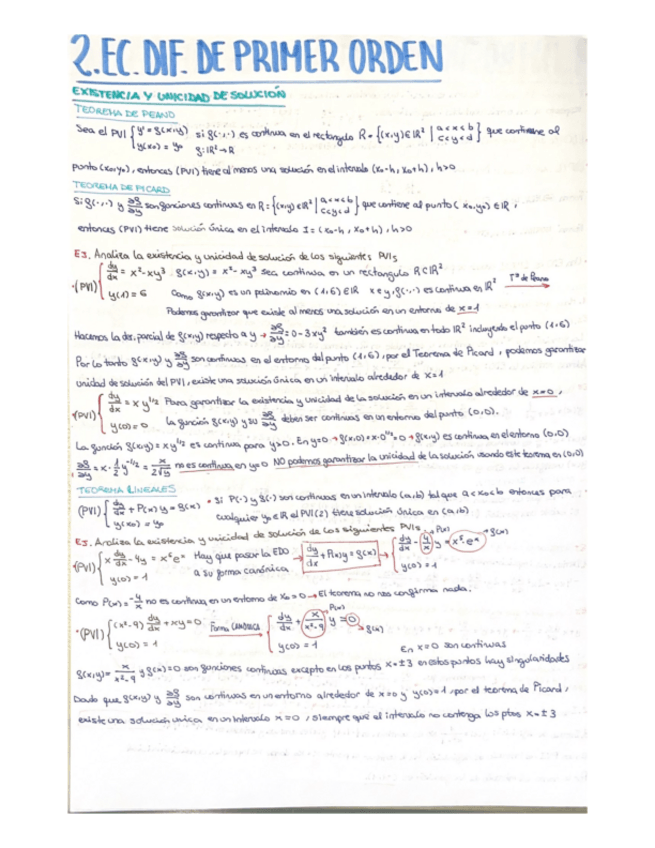 2. EC. DIF. DE PRIMER ORDEN
EXISTENCIA Y UNICIDAD DE SOLUCIÓN
TEOREMA DE PEANO
Sea el PVI { y' = g(x,y) y(x₀) = y₀ si g(·,·) es continua en el rectángulo R = {(x,y)∈ℝ² | a<x<b c<y<d} que contiene al
g: ℝ²→ℝ
punto (x₀,y₀), entonces (PVI) tiene al menos una solución en el intervalo (x₀-h, x₀+h), h>0
TEOREMA DE PICARD
Si g(·,·) y ∂g/∂y son funciones continuas en R = {(x,y)∈ℝ² | a<x<b c<y<d} que contiene al punto (x₀,y₀)∈ℝ,
entonces (PVI) tiene solución única en el intervalo I = (x₀-h, x₀+h), h>0
EJ. Analiza la existencia y unicidad de solución de los siguientes PVIs
·(PVI) { dy/dx = x² - xy³ . g(x,y) = x² - xy³ sea continua en un rectángulo R⊂ℝ²
y(1) = 6 Como g(x,y) es un polinomio en (1,6)∈ℝ x e y, g(·,·) es continua en ℝ² Tª de Peano →
Podemos garantizar que existe al menos una solución en un entorno de x=1
Hacemos la der. parcial de g(x,y) respecto a y → ∂g/∂y = 0 - 3xy² también es continua en todo ℝ² incluyendo el punto (1,6)
Por lo tanto g(x,y) y ∂g/∂y son continuas en el entorno del punto (1,6), por el Teorema de Picard, podemos garantizar
unicidad de solución del PVI, existe una solución única en un intervalo alrededor de x=1
·(PVI) { dy/dx = x y^1/2 Para garantizar la existencia y unicidad de la solución en un intervalo alrededor de x=0,
y(0) = 0 La función g(x,y) y su ∂g/∂y deben ser continuas en un entorno del punto (0,0).
La función g(x,y) = x y^1/2 es continua para y>0. En y=0 → g(x,0) = x·0^1/2 = 0 → g(x,y) es continua en el entorno (0,0)
∂g/∂y = x · 1/2 y^-1/2 = x/2√y no es continua en y=0 NO podemos garantizar la unicidad de la solución usando este teorema en (0,0)
TEOREMA LINEALES
(PVI) { dy/dx + P(x) y = g(x) y(x₀) = y₀ • Si P(·) y g(·) son continuas en un intervalo (a,b) tal que a<x₀<b entonces para
cualquier y₀∈ℝ el PVI(2) tiene solución única en (a,b).
EJ. Analiza la existencia y unicidad de solución de los siguientes PVIs
·(PVI) { x dy/dx - 4y = x⁶eˣ Hay que pasar la EDO → dy/dx + P(x) y = g(x) → { dy/dx - 4/x y = x⁵·eˣ → P(x) → g(x)
y(0) = 1 a su forma canónica. y(0) = 1
Como P(x) = -4/x no es continua en un entorno de x₀=0 → El teorema no nos confirma nada.
·(PVI) { (x²-9) dy/dx + xy = 0 Forma CANÓNICA → { dy/dx + x/x²-9 y = 0 → P(x) → g(x)
y(0) = 1 y(0) = 1 En x=0 son continuas
g(x,y) = x/x²-9 y g(x) = 0 son funciones continuas excepto en los puntos x=±3 en estos puntos hay singularidades
Dado que g(x,y) y ∂g/∂y son continuas en un entorno alrededor de x=0 y y(0)=1, por el teorema de Picard,
existe una solución única en un intervalo x=0, siempre que el intervalo no contenga los ptos x=±3